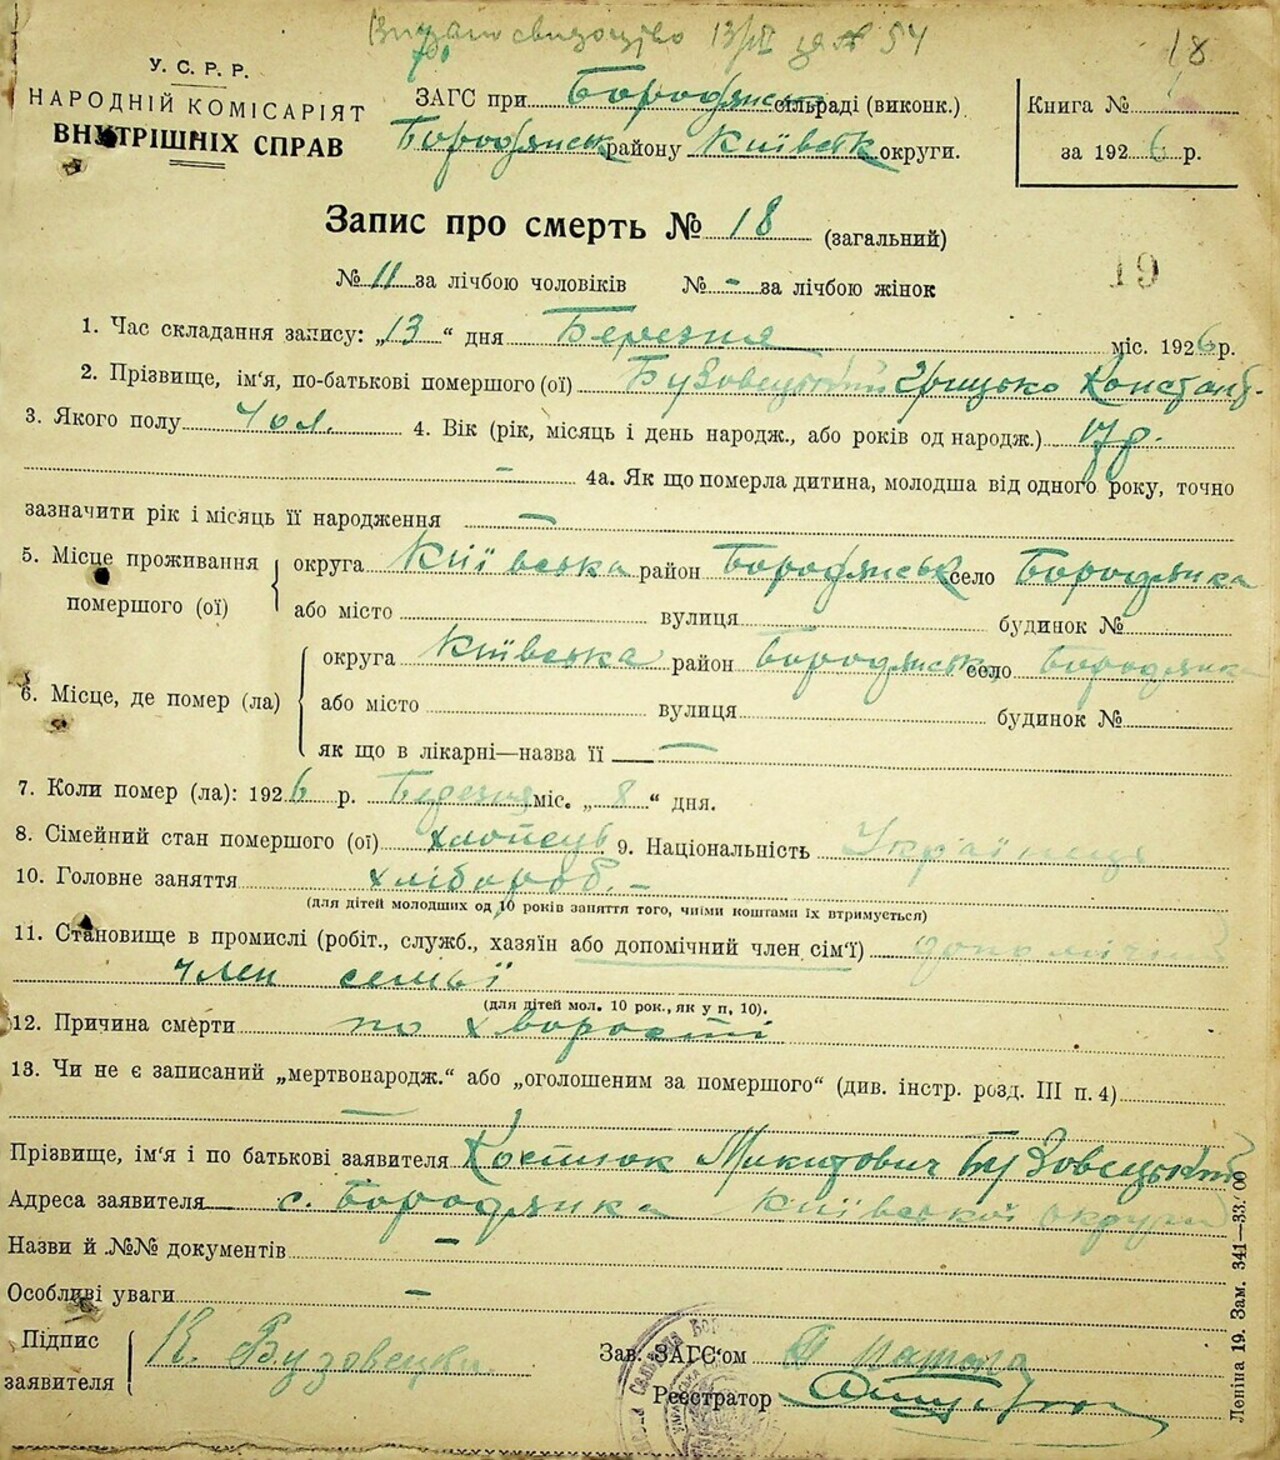 Видано свидоцтво 13/III за № 54
18
У. С. Р. Р.
НАРОДНІЙ КОМІСАРІЯТ
ВНУТРІШНІХ СПРАВ
ЗАГС при Бородянськ сільраді (виконк.)
Бородянськ району Київськ округи.
Книга №
за 1926 р.
Запис про смерть № 18 (загальний)
19
№ 11 за лічбою чоловіків № - за лічбою жінок
1. Час складання запису: „13“ дня Березня міс. 1926 р.
2. Прізвище, ім'я, по-батькові помершого (ої) Бузовецький Грицько Констант.
3. Якого полу чол. 4. Вік (рік, місяць і день народж., або років од народж.) 17 р.
– 4а. Як що померла дитина, молодша від одного року, точно
зазначити рік і місяць її народження –
5. Місце проживання помершого (ої) округа Київська район Бородянськ село Бородянка
або місто вулиця будинок №
6. Місце, де помер (ла) округа Київська район Бородянськ село Бородянка
або місто вулиця будинок №
як що в лікарні—назва її –
7. Коли помер (ла): 1926 р. Березня міс. „8“ дня.
8. Сімейний стан помершого (ої) хлопець 9. Національність Українець
10. Головне заняття хлібороб. –
(для дітей молодших од 10 років заняття того, чиїми коштами їх втримується)
11. Становище в промислі (робіт., служб., хазяїн або допомічний член сім'ї) допомічний
член семьї
(для дітей мол. 10 рок., як у п. 10).
12. Причина смерти по хворості
13. Чи не є записаний „мертвонародж.“ або „оголошеним за помершого“ (див. інстр. розд. III п. 4)
–
Прізвище, ім'я і по батькові заявителя Костюк Микитович Бузовецький
Адреса заявителя с. Бородянка Київської округи
Назви й №№ документів –
Особливі уваги –
Підпис заявителя К. Бузовецки
Зав. ЗАГС'ом
Реєстратор
Леніна 19. Зам. 341—33.